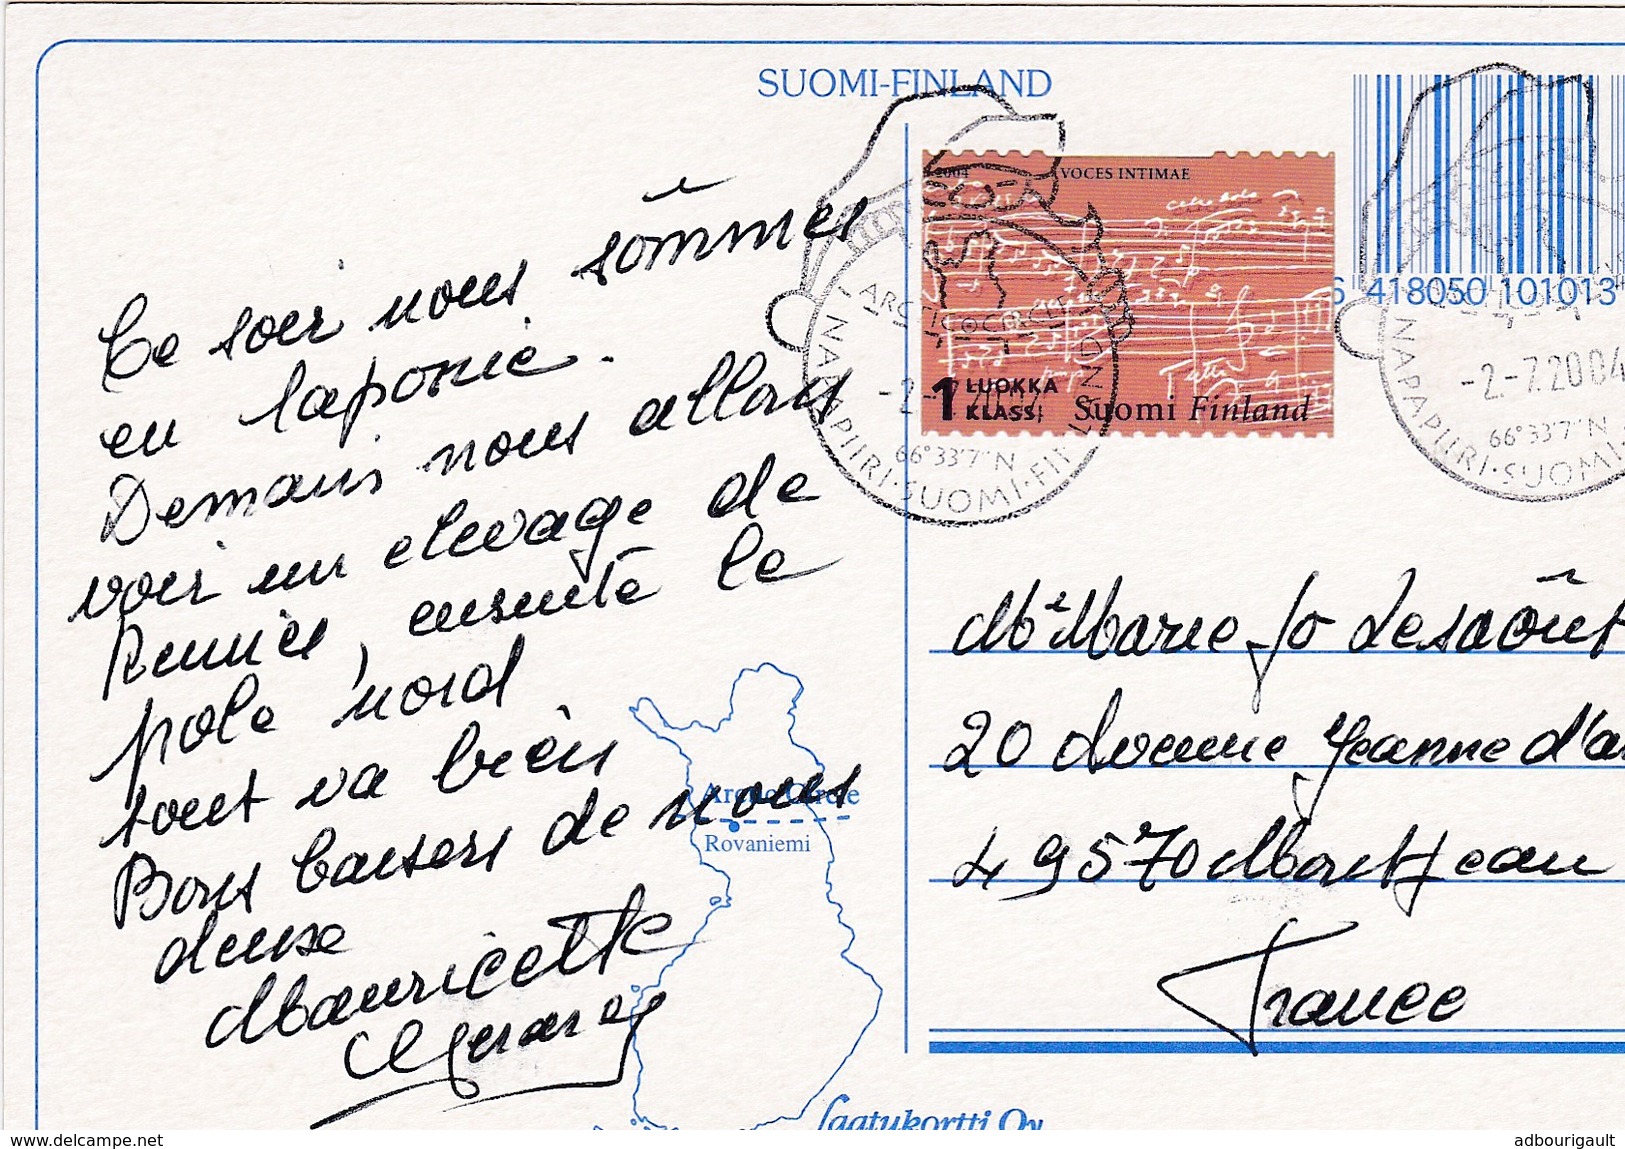 SUOMI-FINLAND
2004 VOCES INTIMAE
1 LUOKKA
KLASSI
Suomi Finland
ARCTIC CIRCLE
-2.-7.2004
66°33'7"N
NAPAPIIRI·SUOMI·FINLAND
6 418050 101013
-2.-7.2004
66°33'7"N
NAPAPIIRI·SUOMI
Ce soir nous sommes
en laponie.
Demain nous allons
voir un elevage de
Rennes, ensuite le
pole nord
tout va bien
Bons baisers de nous
deux
Mauricette
Gerard
Mme Marie Jo Lesaout
20 Avenue Jeanne d'a
49570 Montjean
France
Arctic Circle
Rovaniemi
Laatukortti Oy
www.delcampe.net
adbourigault